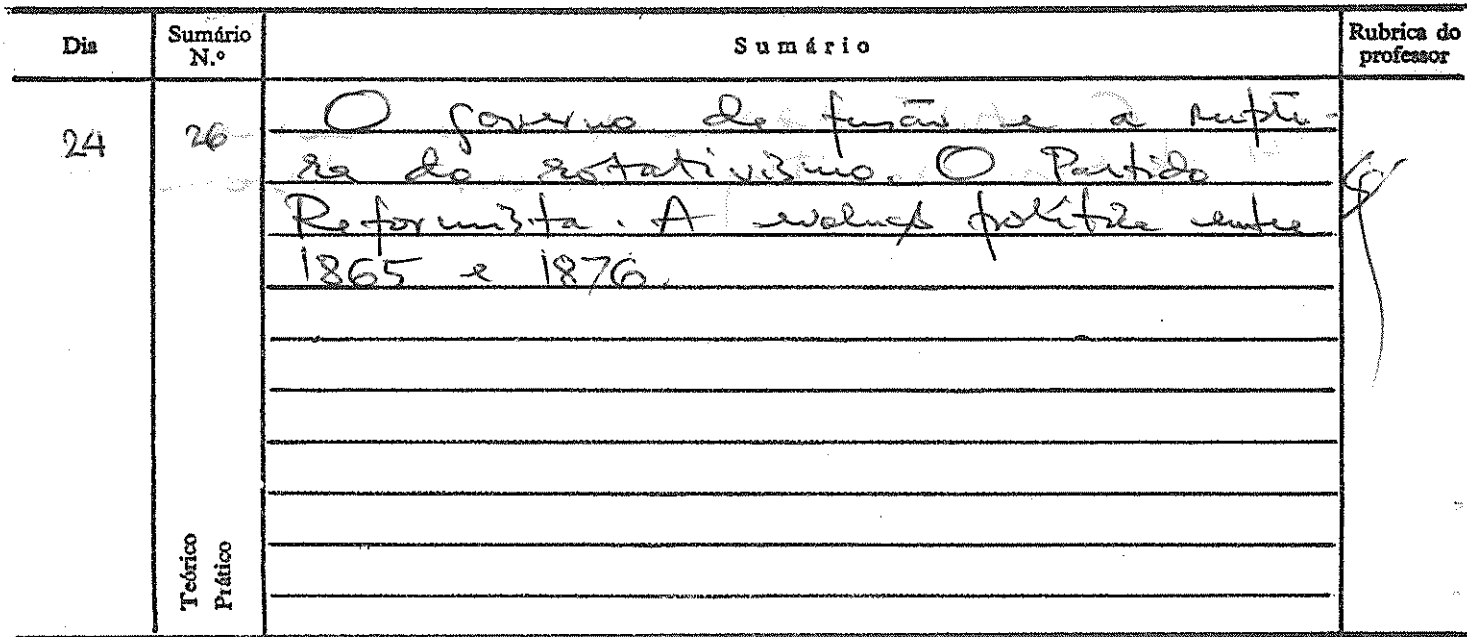 Dia Sumário N.º Sumário Rubrica do professor
24 26 O governo de fusão e a ruptu-
ra do rotativismo. O Partido
Reformista. A evolução política entre
1865 e 1876.
Teórico
Prático